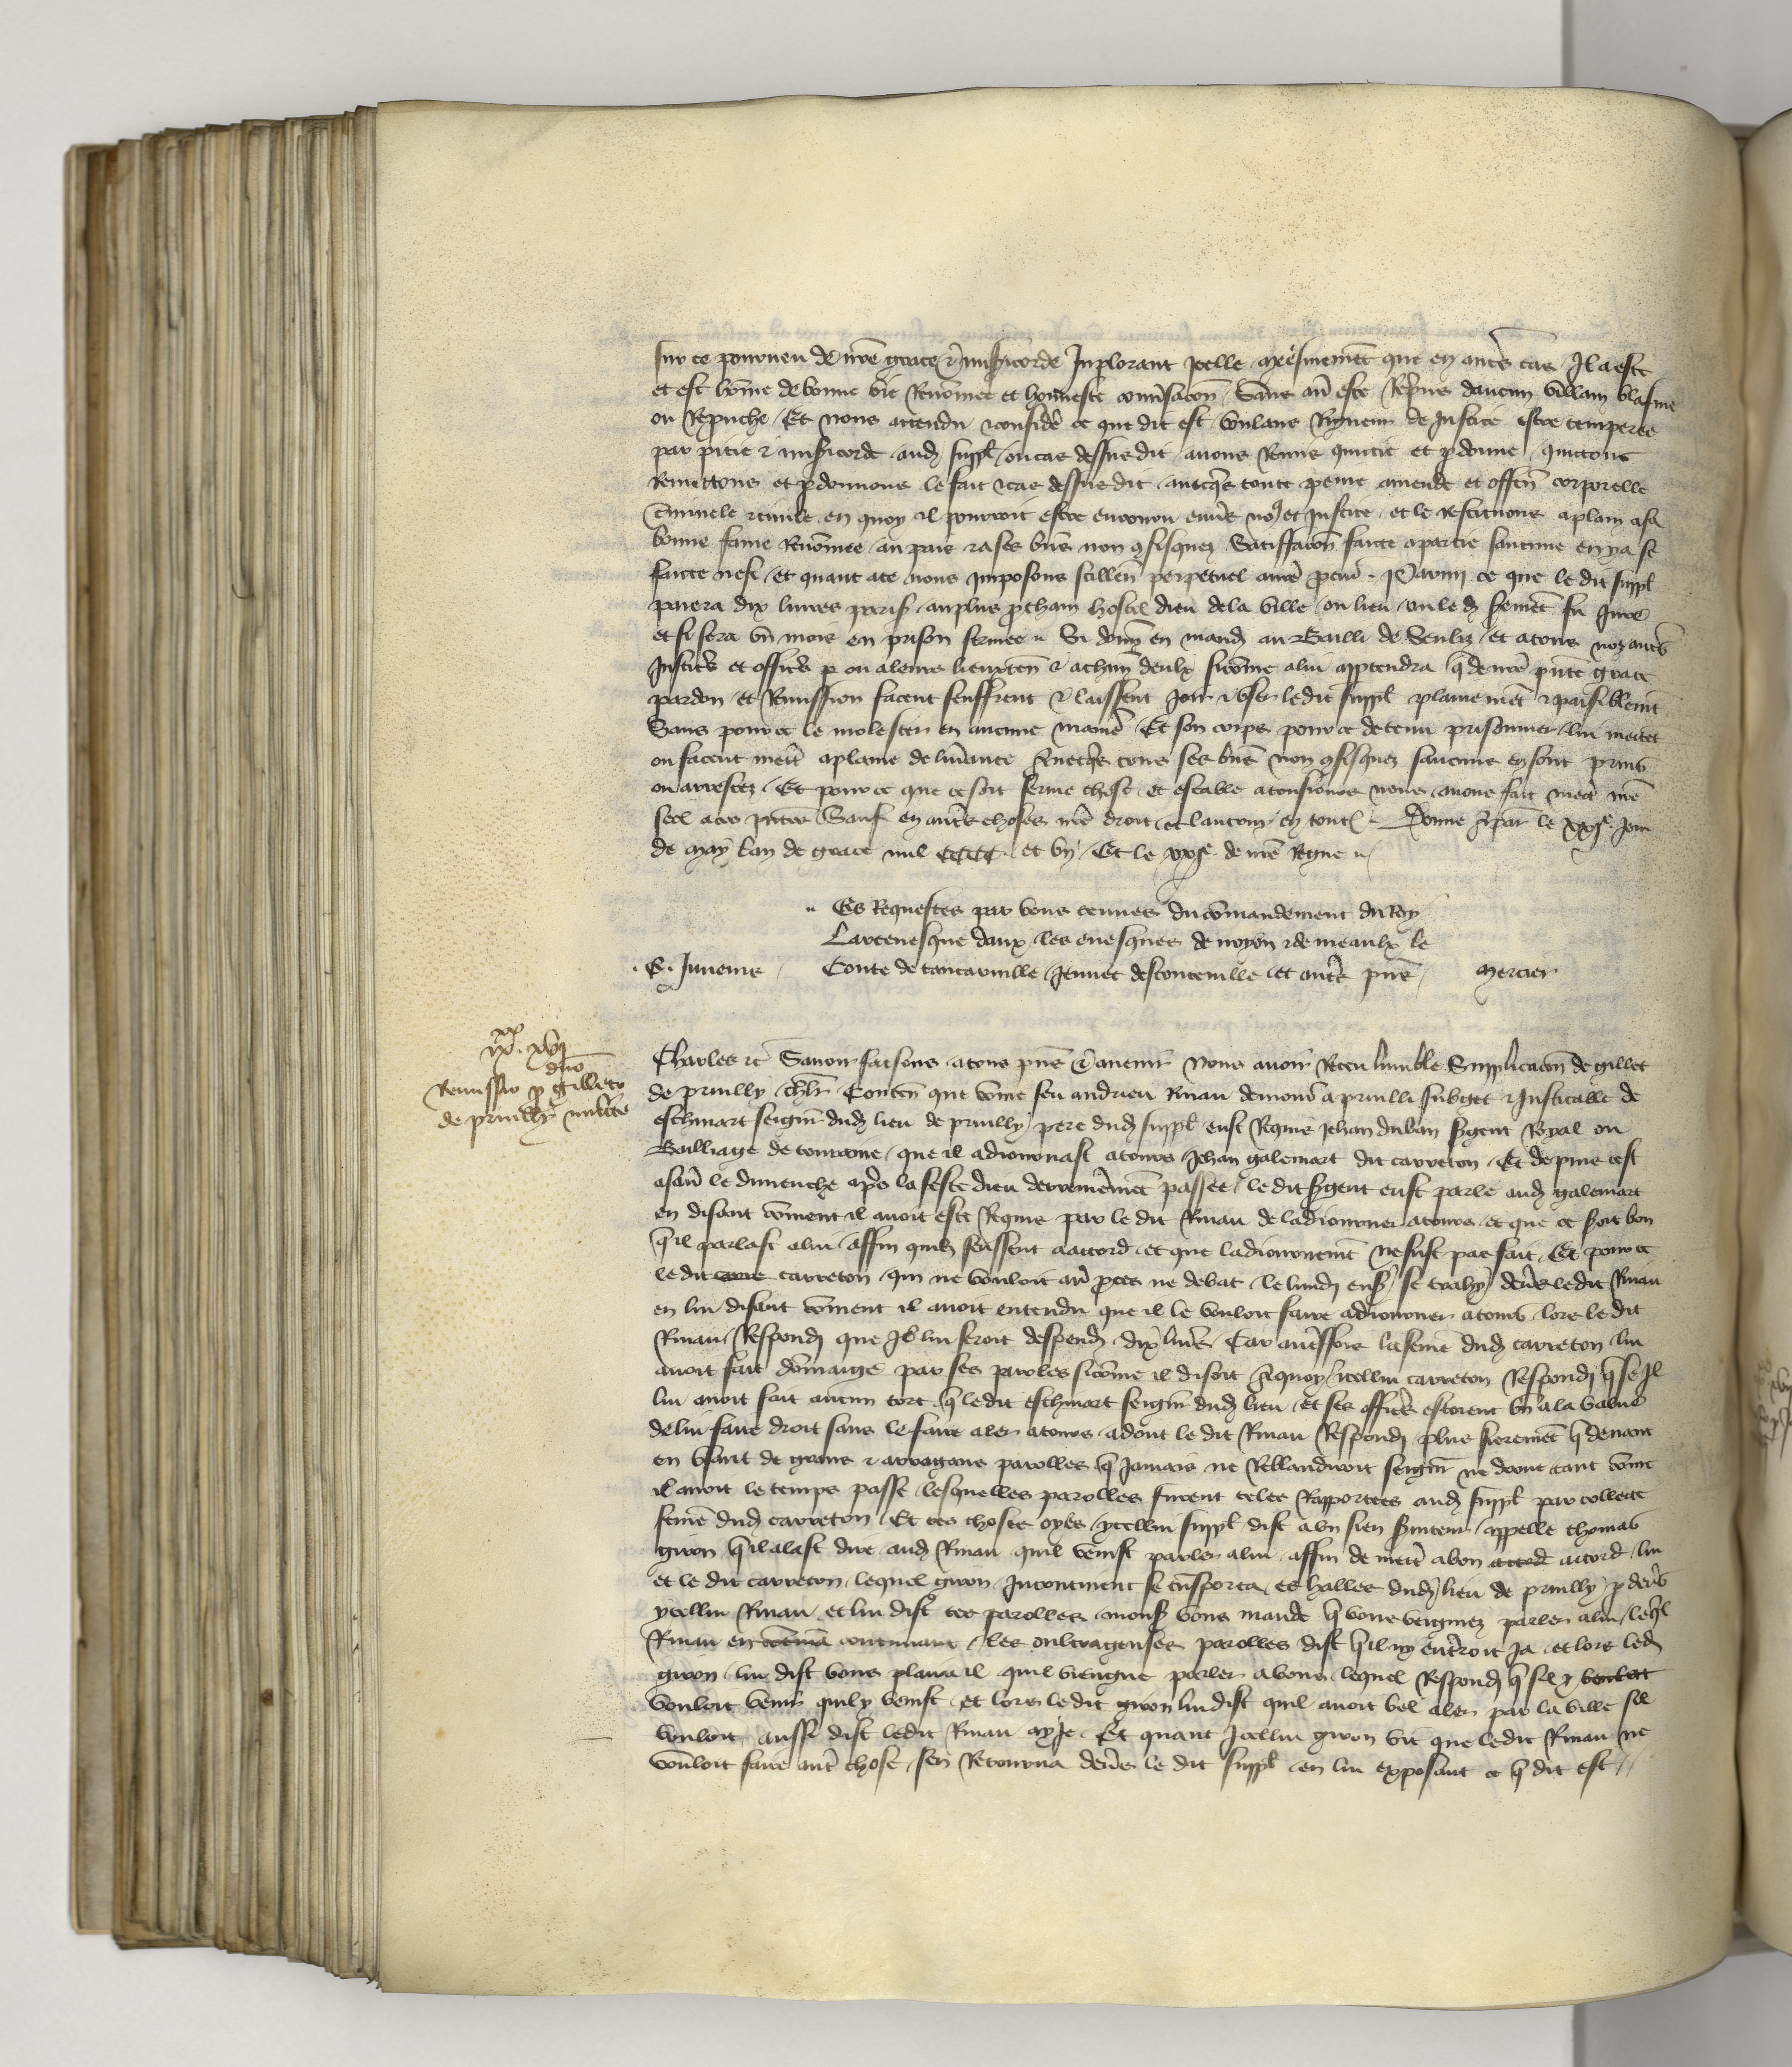 sur ce pourueu de nre grace et misericorde Inplorant Icelle mesmement que en autres cas Il a este
et est home de bonne vie Renomee et honneste conuersacon Sans auoir este Reprins daucun villain blasme
ou Reproche Et nous attendu et considere ce que dit est voulans Rigueur de Justice estre temperee
par pitie et misericorde aud suppl ou cas dessusdit auons Remis quictie et pdonne quictons
Remettons et pdonnons le fait et cas dessusdit auecques toute peine amende et offense corporelle
criminele et ciuile en quoy il pourroit estre encouru enuers nous et Justice et le restituons aplain asa
bonne fame Renomee au pais et a ses biens non confisquez Satisfacon faicte a partie saucune en y a se
faicte nest et quant ace nous Imposons scillence perpetuel a nre procur Parmy ce que le dit suppl
paiera dix liures paris au plus prochain hostel dieu de la ville ou lieu ou le d serment fu Jure
et si sera un mois en prison fermee Si donnons en mand au Bailli de Senliz et atous noz autres
Justiciers et officiers p ou aleurs lieuxten et achun deulx sicome alui apptendra q de nre pnte grace
pardon et Remission facent seuffrent et laissent Joir et user ledit suppl plainement et paisiblement
Sans pour ce le molester en aucune maniere Et son corps pour ce detenu prisonnier lui mettent
ou facent mettre aplaine deliurance Auecques tous ses biens non confisquez saucuns en sont prins
ou arrestez Et pour ce que ce soit ferme chose et estable atousiours nous auons fait mettre nre
seel aces pntes Sauf en autres choses nre droit et lautruy en toutes Donne a par le xxje Jour
de may lan de grace mil cccc et un Et le xxje de nre Regne
Es Requestes par vous tenues du comandement du Roy
Larceuesque daux les euesques de noyon et de meaulx le
. E . Juuenis Conte de tancaruille Jennet destouteuille et autres pns mercier
xx
ix . xvij
Remissio p gilleto dno
de pruilly milite
Charles etc Sauoir faisons atous pns et auenir Nous auoir Receu lumble Supplicacon de gillet
de pruilly chlr Conten que come feu andrieu Rinau demour a pruilli subget et Justicable de
eschiuart seigneur dud lieu de pruilly pere dud suppl eust Requis Jehan duban sergent Royal ou
Bailliage de touraine que il adiournast atours Jehan galemart dit carreton Et depuis cest
asauoir le dimenche apres la feste dieu derrenierement passee le dit sergent eust parle aud galemart
en disant coment il auoit este Requis par le dit Rinau de ladiourner atours et que ce soit bon
quil parlast alui affin quilz feussent a accord et que ladiournement ne fust pas fait Et pour ce
ledit carre carreton qui ne vouloit auoir proces ne debat le lundi ensuiuant se trahy deuers ledit Rinau
en lui disant coment il auoit entendu que il le vouloit faire adiourner atours lors le dit
Rinau Respondi que Il lui feroit despendre dix liures Car autreffois la feme dud carreton lui
auoit fait domaige par ses paroles sicome il disoit Aquoy icellui carreton Respondi q se Il
lui auoit fait aucun tort q ledit eschiuart seigneur dud lieu et ses officiers estoient bn a la value
de lui faire droit sans le faire aler atours adont le dit Rinau Respondi plus fierement q deuant
en usant de grans et arrogans parolles q Jamais ne seigneur ne donne tant come
il auoit le temps passe lesquelles parolles furent telles Rapportees aud suppl par collette
feme dud carreton Et ces choses oyes ycellui suppl dist a un sien seruiteur appelle thomas
giron quil alast dire aud Rinau quil venist parler alui affin de mettre abon accord accord lui
et le dit carreton lequel giron Incontinent se transporta es halles dud lieu de pruilly p deuers
ycellui Rinau et lui dist ces parolles monsr vous mande q vous veigniez parler alui leql
Rinau en continuant les oultrageuses parolles dist quil ny entreroit Ja et lors led
giron lui dist vous plaira il quil viengne parler a vous lequel Respondi q sil y vouloit
vouloit venir quil y venist et lors ledit giron lui dist quil auoit bel aler par la ville sil
vouloit aussi dist ledit Rinau ay Je Et quant Icellui giron vit que ledit Rinau ne
vouloit faire autre chose sen Retourna deuers le dit suppl en lui exposant ce q dit est